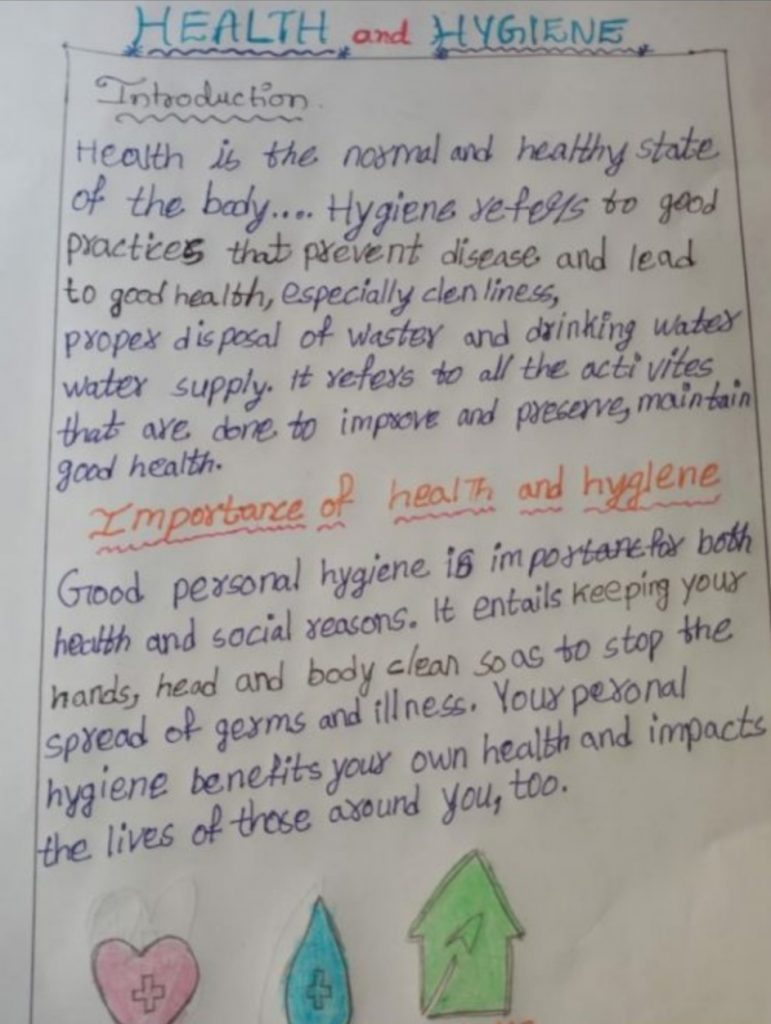 HEALTH and HYGIENE
Introduction.
Health is the normal and healthy state
of the body.... Hygiene refers to good
practices that prevent disease and lead
to good health, especially clenliness,
proper disposal of waster and drinking water
water supply. It refers to all the activites
that are done to improve and preserve, maintain
good health.
Importance of health and hygiene
Good personal hygiene is important for both
health and social reasons. It entails keeping your
hands, head and body clean so as to stop the
spread of germs and illness. Your peronal
hygiene benefits your own health and impacts
the lives of those around you, too.